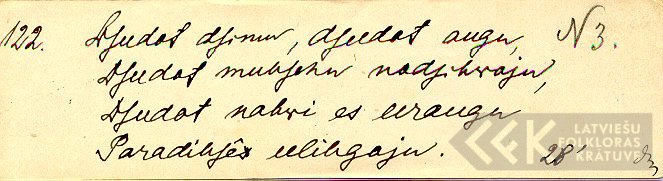 122. Dſeedot dſimu, dſeedot augu, N3.
Dſeedot muhſchu nodſihwoju,
Dſeedot nahwi es eeraugu
Paradihſês eelihgoju.
28'
LFK
LATVIEŠU
FOLKLORAS
KRĀTUVE